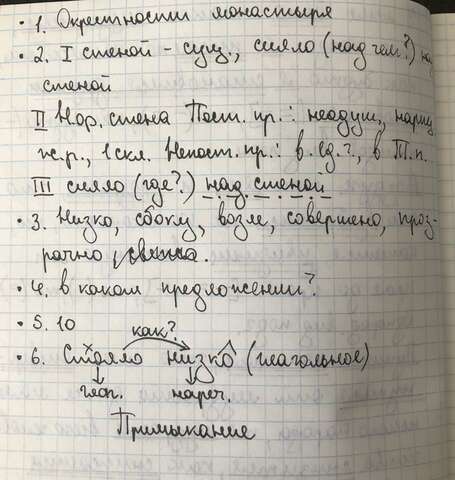 • 1. Окрестности монастыря
• 2. I стеной - сущ., сияло (над чем?) над
стеной
II Нар. стена Пост. пр.: неодуш, нариц
ж.р., 1 скл. Непост. пр.: в ед. ч., в Т.п.
III сияло (где?) над стеной
• 3. Низко, сбоку, возле, совершено, проз-
рачно
• 4. в каком предложении?
• 5. 10
как?
• 6. Стояло низко (глагольное)
глаг. нареч.
Примыкание